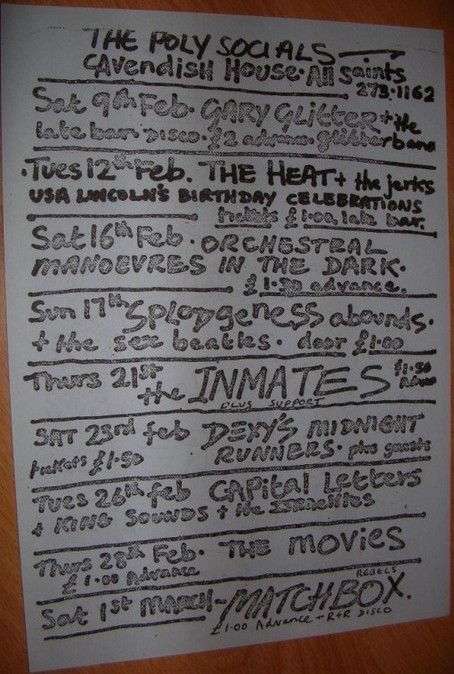 THE POLY SOCIALS
CAVENDISH HOUSE · All Saints
273·1162
Sat 9th Feb · GARY GLITTER + the
late bar · DISCO · £2 advance, glitterband
Tues 12th Feb. THE HEAT + the jerks
USA LINCOLN'S BIRTHDAY CELEBRATIONS
tickets £1.00, late bar.
Sat 16th Feb · ORCHESTRAL
MANOEVRES IN THE DARK ·
£1.50 advance.
Sun 17th Splodgeness abounds ·
+ the sex beatles · door £1.00
Thurs 21st the INMATES £1.50 ADVN
PLUS SUPPORT
SAT 23rd feb DEXY'S MIDNIGHT
tickets £1.50 RUNNERS · plus guests
Tues 26th feb CAPital Letters
+ KING SOUNDS + the Israelites
Thurs 28th Feb · THE MOVIES
£1.00 Advance
Sat 1st MARCH - MATCHBOX.
REBELS
£1.00 Advance - R+R DISCO